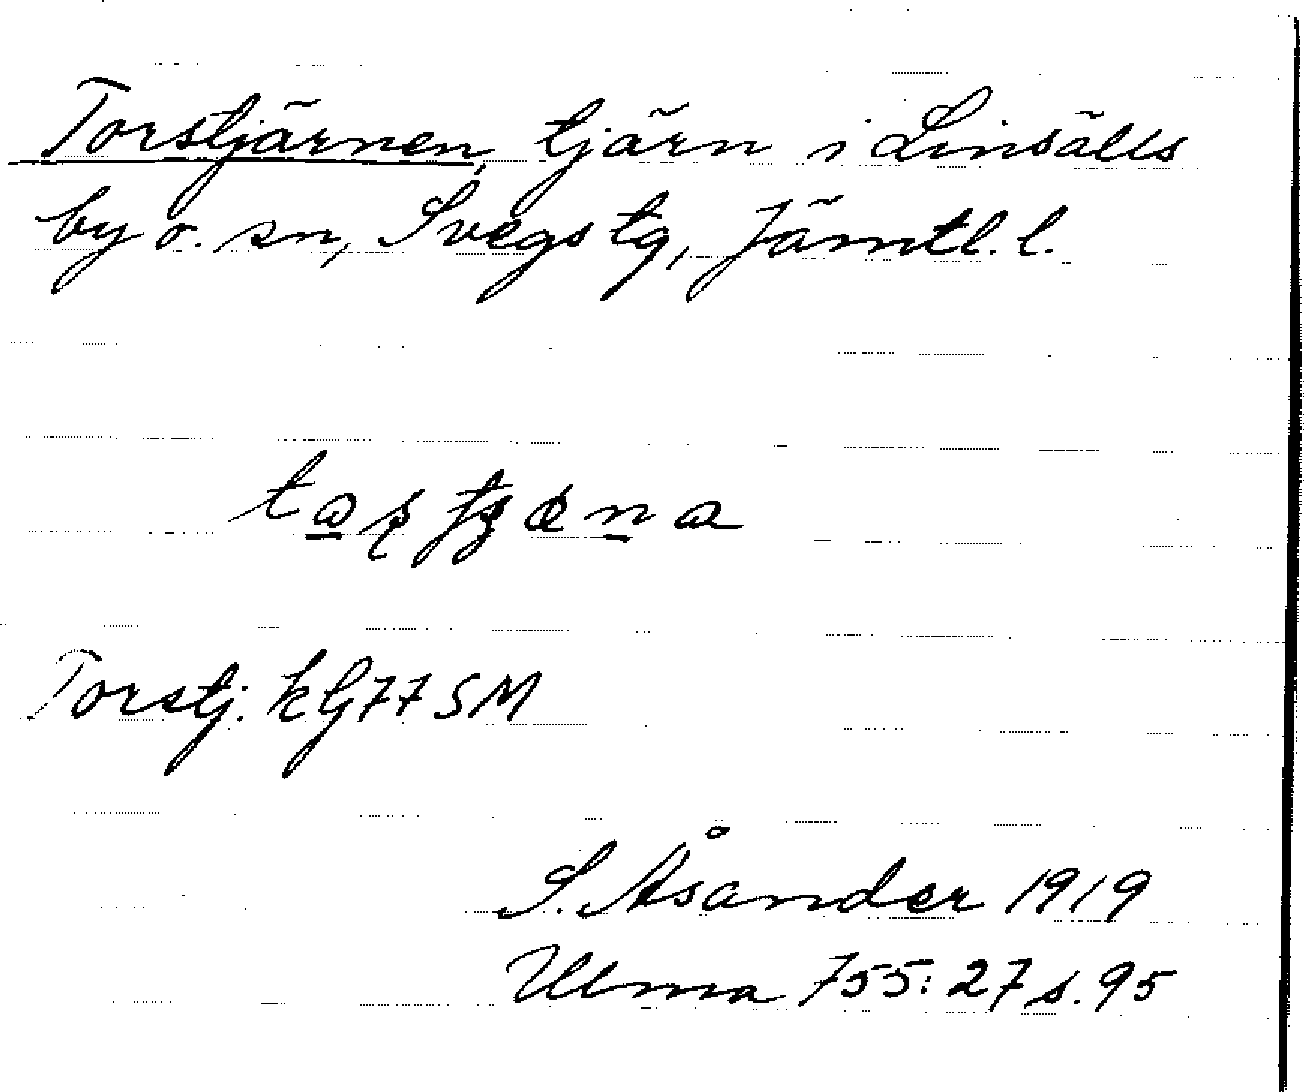 Torstjärnen, tjärn i Linsälls
by o. sn, Svegs tg, Jämtl. l.
Torstj. kG77SM
S. Åsander 1919
Ulma 755:27 s. 95